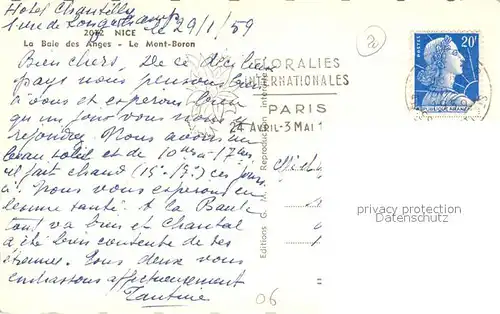 Hôtel Chantilly
1 rue de Longchamp le 29/1/59
2072 NICE
La Baie des Anges - Le Mont-Boron
Bien chers, De ce délicieux
pays nous pensons
à vous et espérons bien
qu'un jour vous nous
rejoindrez. Nous avons un
beau soleil et de 10 hres à 17 hres
il fait chaud (15° - 19°) ces jours
ci. Nous vous espérons en
bonne santé. A la
tout va bien et Chantal
a été bien contente de ses
étrennes. Tous deux vous
embrassons affectueusement
Tantine
20
FLORALIES
INTERNATIONALES
PARIS
24 AVRIL-3 MAI
POSTES
20F
Editions G. M. Reproduction Interdite
privacy protection
Datenschutz
06